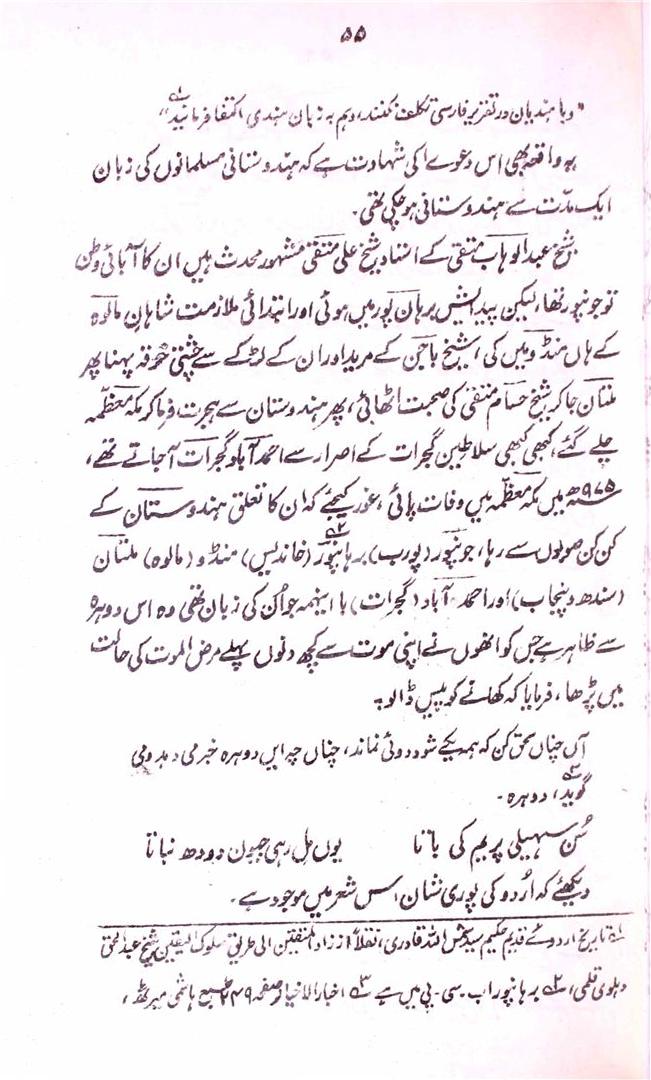 ۵۵
"وبا ہندیان در تقریر فارسی تکلف نکنند، وہم بہ زبان ہندی اکتفا فرمائند"
یہ واقعہ بھی اس دعوے کی شہادت ہے کہ ہندوستانی مسلمانوں کی زبان
ایک مدّت سے ہندوستانی ہو چکی تھی۔
شیخ عبدالوہاب متقی کے استاد شیخ علی متقی مشہور محدث ہیں ان کا آبائی وطن
تو جونپور تھا، لیکن پیدائش برہان پور میں ہوئی اور ابتدائی ملازمت شاہان مالوہ
کے ہاں منڈو میں کی، شیخ باجن کے مرید اور ان کے لڑکے سے چشتی خرقہ پہنا پھر
ملتان جا کر شیخ حسام متقی کی صحبت اٹھائی، پھر ہندوستان سے ہجرت فرما کر مکہ معظمہ
چلے گئے، کبھی کبھی سلاطین گجرات کے اصرار سے احمد آباد گجرات آ جاتے تھے،
۹۷۵ھ میں مکہ معظمہ میں وفات پائی، غور کیجئے کہ ان کا تعلق ہندوستان کے
کن کن صوبوں سے رہا، جونپور (پورب) برہانپور۲ (خاندیس) منڈو (مالوہ) ملتان
(سندھ و پنجاب) اور احمد آباد (گجرات) با اینہمہ جو اُن کی زبان تھی وہ اس دوہرہ
سے ظاہر ہے جس کو انھوں نے اپنی موت سے کچھ دنوں پہلے مرض الموت کی حالت
میں پڑھا، فرمایا کہ کھانے کو پیس ڈالو:۔
آں چناں سحق کن کہ ہمہ یکے شود و دوئی نماند، چناں چہ ایں دوہرہ خبر می دہد و می
گوید،۳ دوہرہ۔
سُن سہیلی پریم کی باتا یوں مل رہی جیون دودھ نباتا
دیکھئے کہ اُردو کی پوری نشان اس شعر میں موجود ہے۔
۱؎ تاریخ اردوئے قدیم حکیم سید شمس اللہ قادری، نقلاً از زاد المتقین الی طریق سلوک الیقین شیخ عبدالحق
دہلوی قلمی، ۲؎ برہانپور اب سی۔پی میں ہے ۳؎ اخبار الاخیار صفحہ ۲۴۹ طبع ہاشمی میرٹھ،